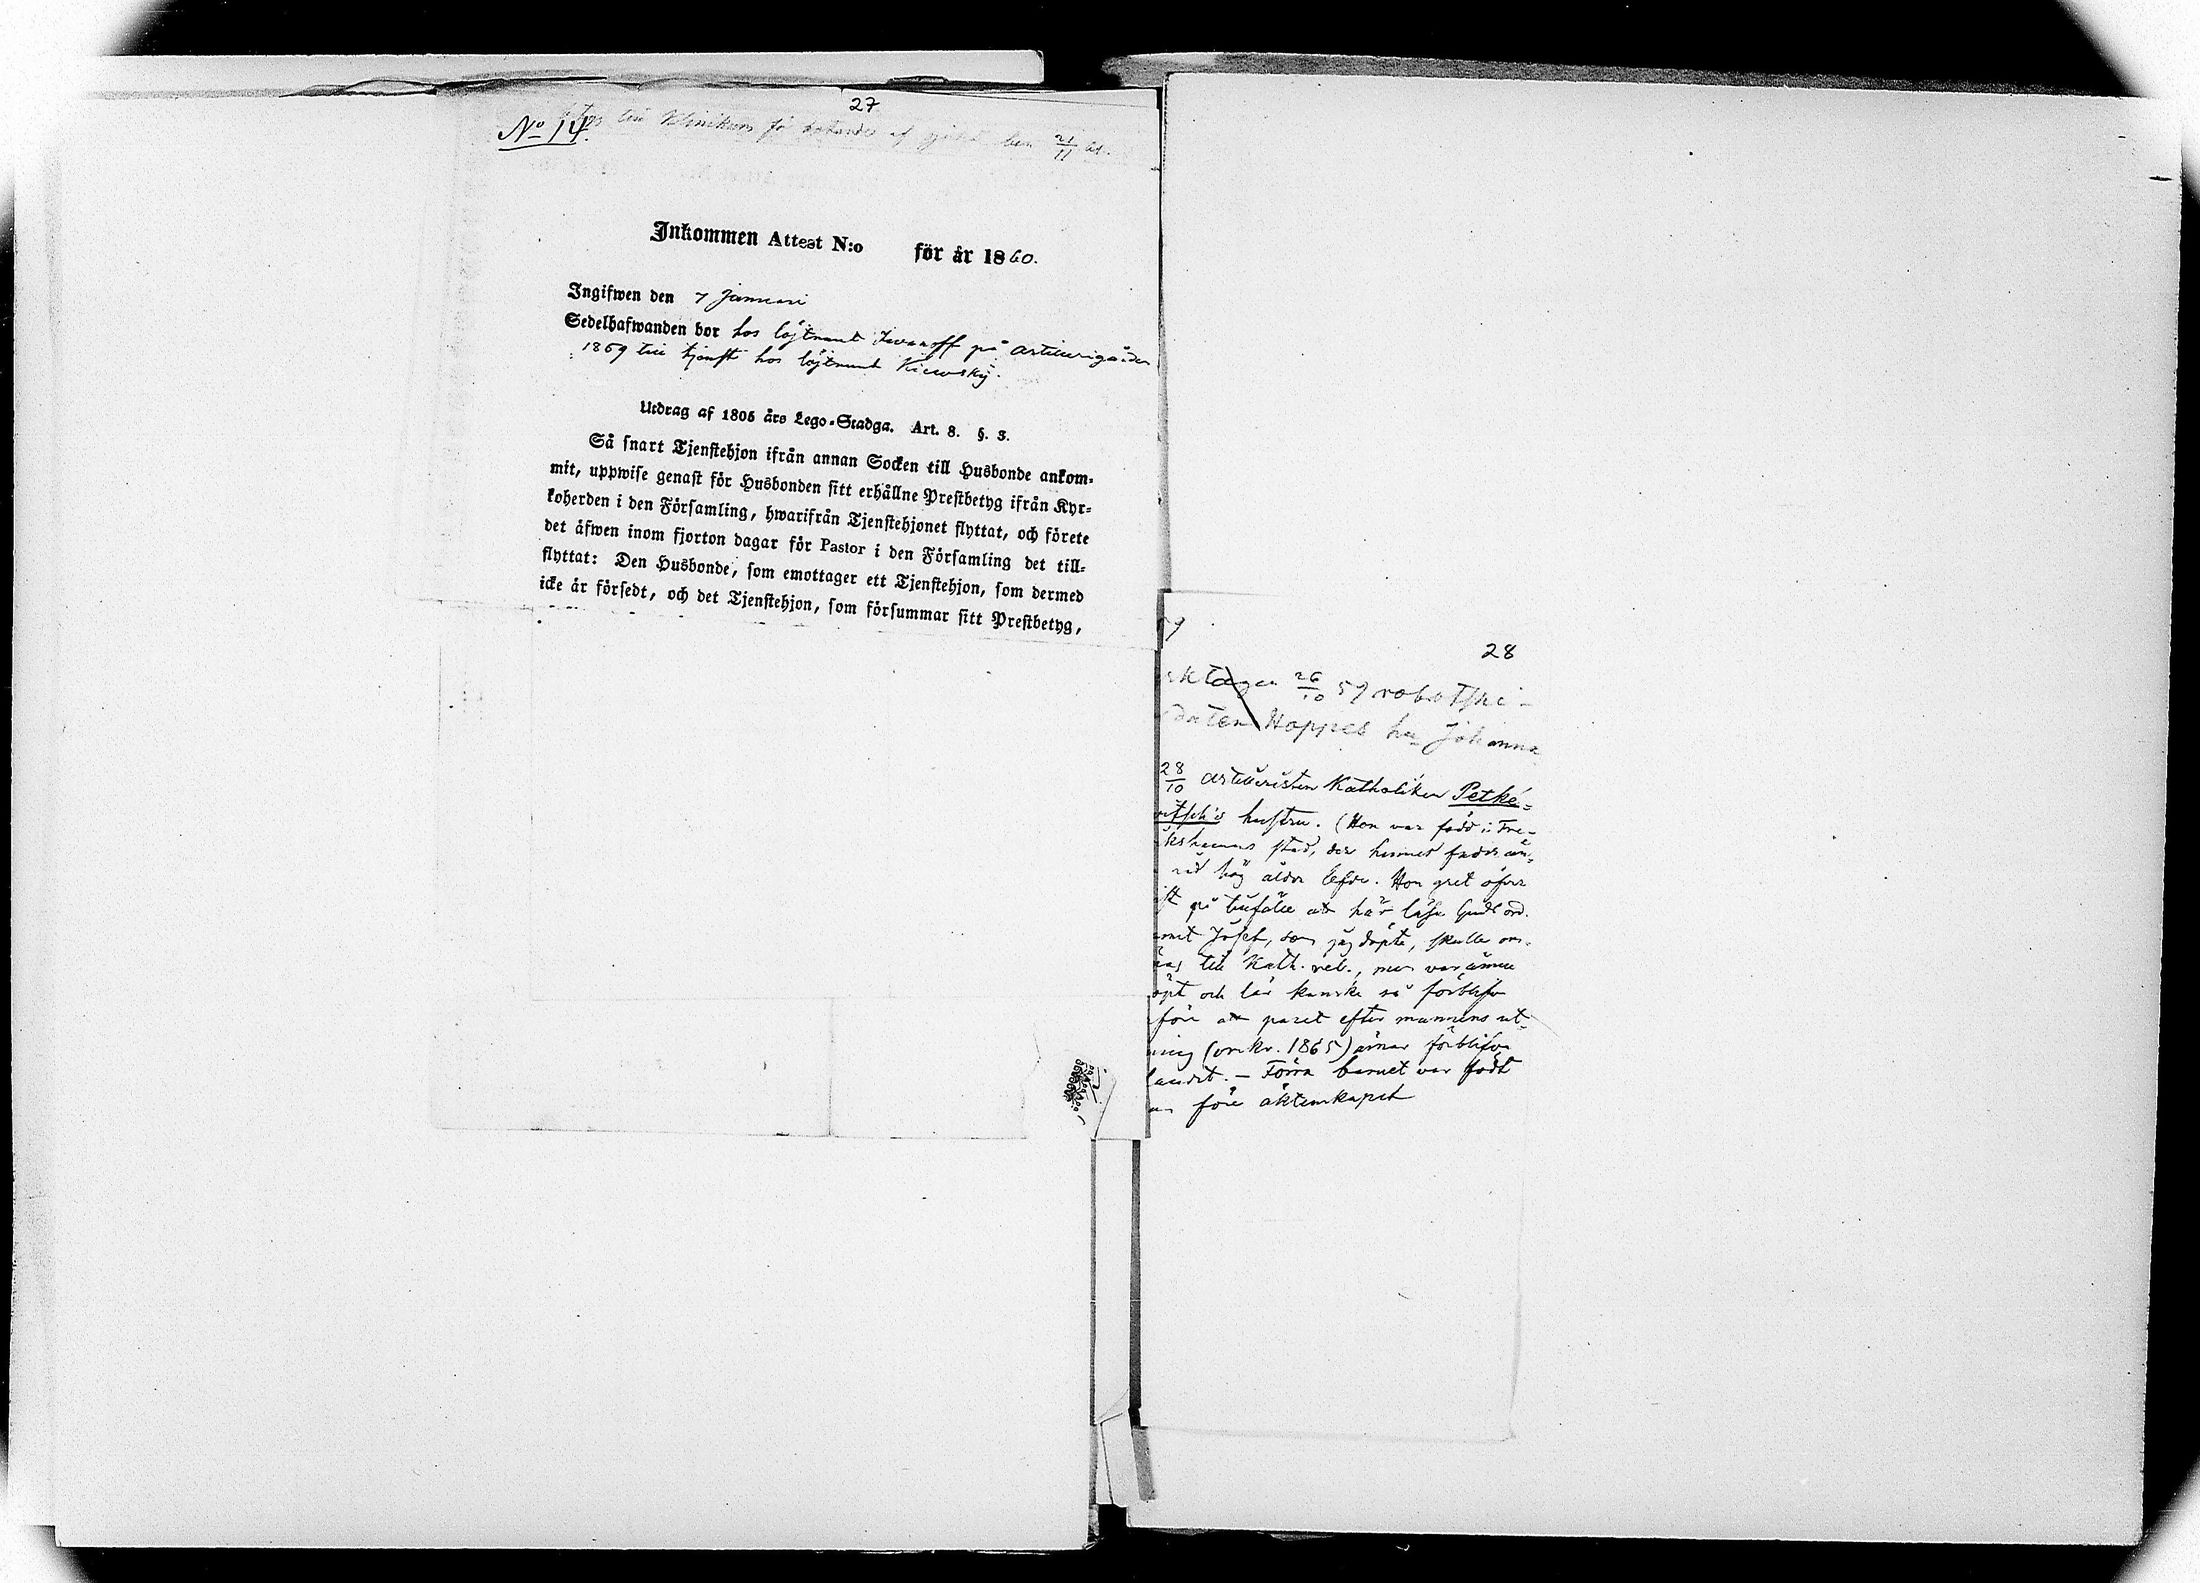 27
No 14.
till Kliniken för den 21/11
Inkommen Attest N:o för år 1860.
Ingifwen den 7 Januari
Sedelhafwanden bor hos löjtnant Ivanoff på artillerigården
1859 till tjenst hos löjtnant Kiewsky.
Utdrag af 1805 års Lego-Stadga. Art. 8. §. 3.
Så snart Tjenstehjon ifrån annan Socken till Husbonde ankom-
mit, uppwise genast för Husbonden sitt erhållne Prestbetyg ifrån Kyr-
koherden i den Församling, hwarifrån Tjenstehjonet flyttat, och förete
det äfwen inom fjorton dagar för Pastor i den Församling det till-
flyttat: Den Husbonde, som emottager ett Tjenstehjon, som dermed
icke är försedt, och det Tjenstehjon, som försummar sitt Prestbetyg,
28
26/10 59
Hoppes hu Johanna
28/10 artilleristen Katholiken Petké-
hustru. (Hon var född i Fre-
kshamns stad, der hennes fader än-
vid hög ålder lefde. Hon gret öfver
på tillfälle att här läsa Guds ord.
Josef, som jag döpte, skulle om-
till Kath. rel., men var ännu
öpt och lär kanske så förblifva
före att paret efter mannens ut-
ning (omkr. 1865) ärnar förblifva
landet. — Förra barnet var födt
före äktenskapet